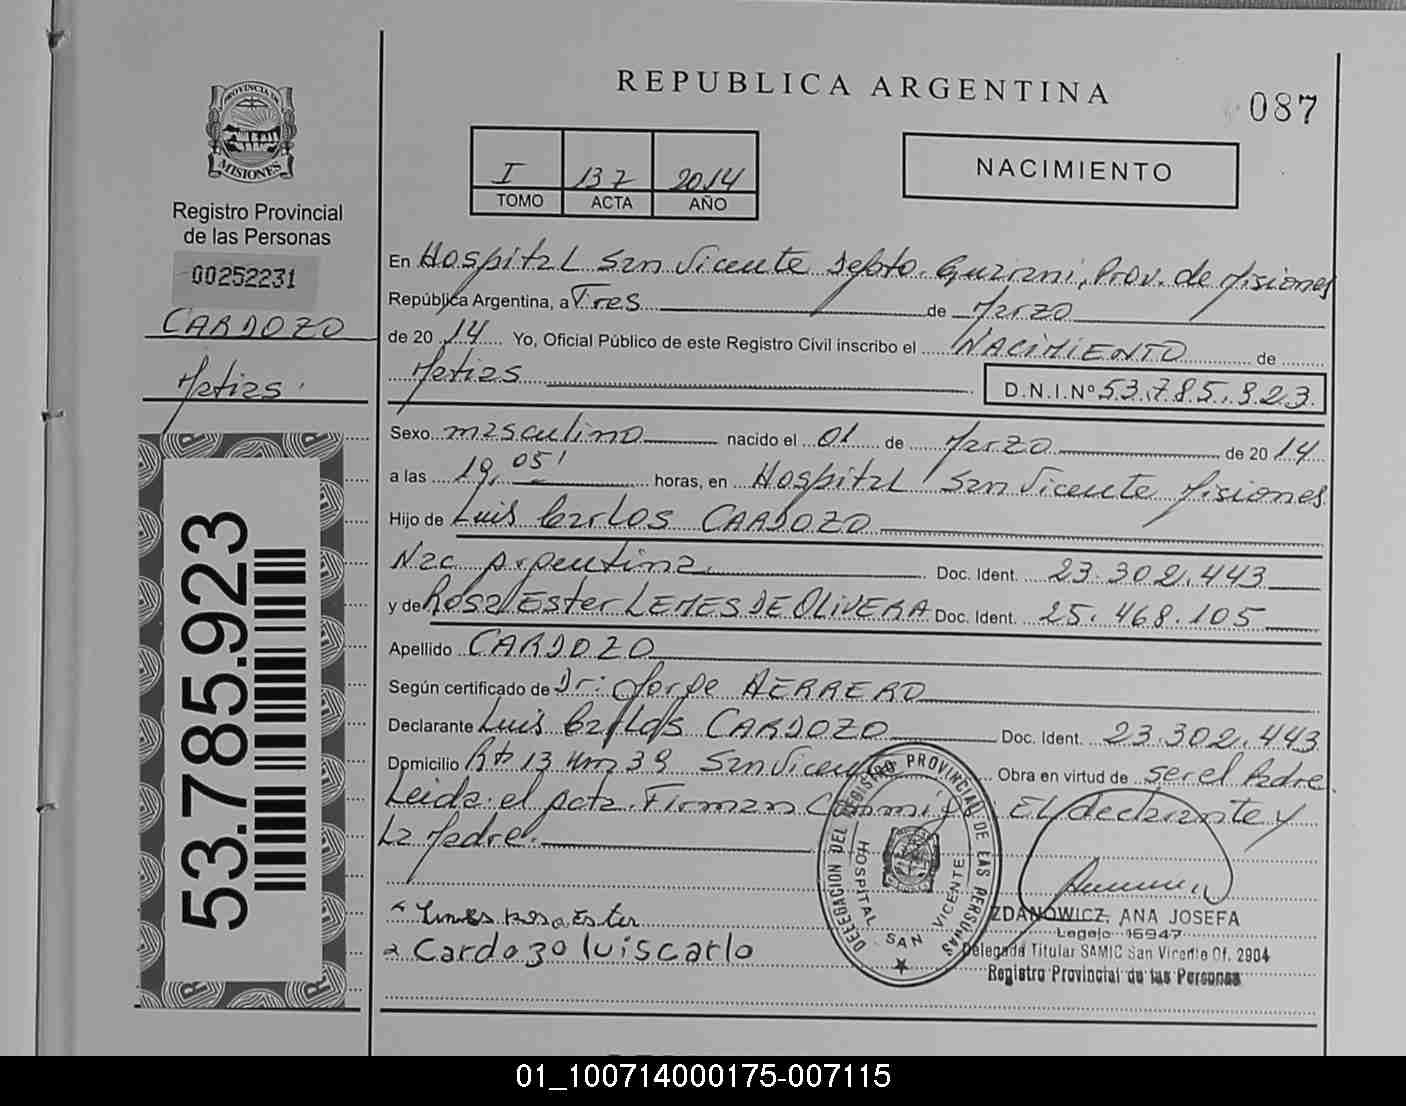 REPUBLICA ARGENTINA
087
PROVINCIA DE
MISIONES
Registro Provincial
de las Personas
00252231
CARDOZO
Matias
53.785.923
I 137 2014
TOMO ACTA AÑO
NACIMIENTO
En Hospital San Vicente Depto. Guarani, Prov. de Misiones
República Argentina, a Tres de Marzo
de 2014 Yo, Oficial Público de este Registro Civil inscribo el NACIMIENTO de
Matias D.N.I.Nº 53.785.923
Sexo masculino nacido el 01 de Marzo de 2014
a las 19,05' horas, en Hospital San Vicente Misiones
Hijo de Luis Carlos CARDOZO
Nac. Argentina Doc. Ident. 23.302.443
y de Rosa Ester LEMES DE OLIVERA Doc. Ident. 25.468.105
Apellido CARDOZO
Según certificado de Dr: Jorge HERRERO
Declarante Luis Carlos CARDOZO Doc. Ident. 23.302.443
Domicilio Rta 13 Km 39 San Vicente Obra en virtud de ser el Padre
Leida el acta Firman Conmigo El declarante y
La Madre.
DELEGACION DEL REGISTRO PROVINCIAL DE LAS PERSONAS
HOSPITAL SAN VICENTE
Rosa Ester
Cardozo luis carlo
ZDANOWICZ, ANA JOSEFA
Legajo 16947
Delegada Titular SAMIC San Vicente Of. 2904
Registro Provincial de las Personas
01_100714000175-007115